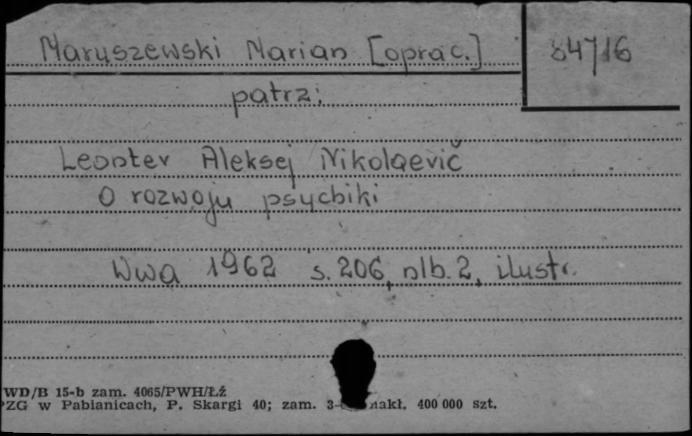 Maruszewski Marian [oprac.] 84716
patrz:
Leontev Aleksej Nikolaevič
O rozwoju psychiki
Wwa 1962 s. 206, nlb. 2, ilustr.
WD/B 15-b zam. 4065/PWH/Łź
PZG w Pabianicach, P. Skargi 40; zam. nakł. 400 000 szt.